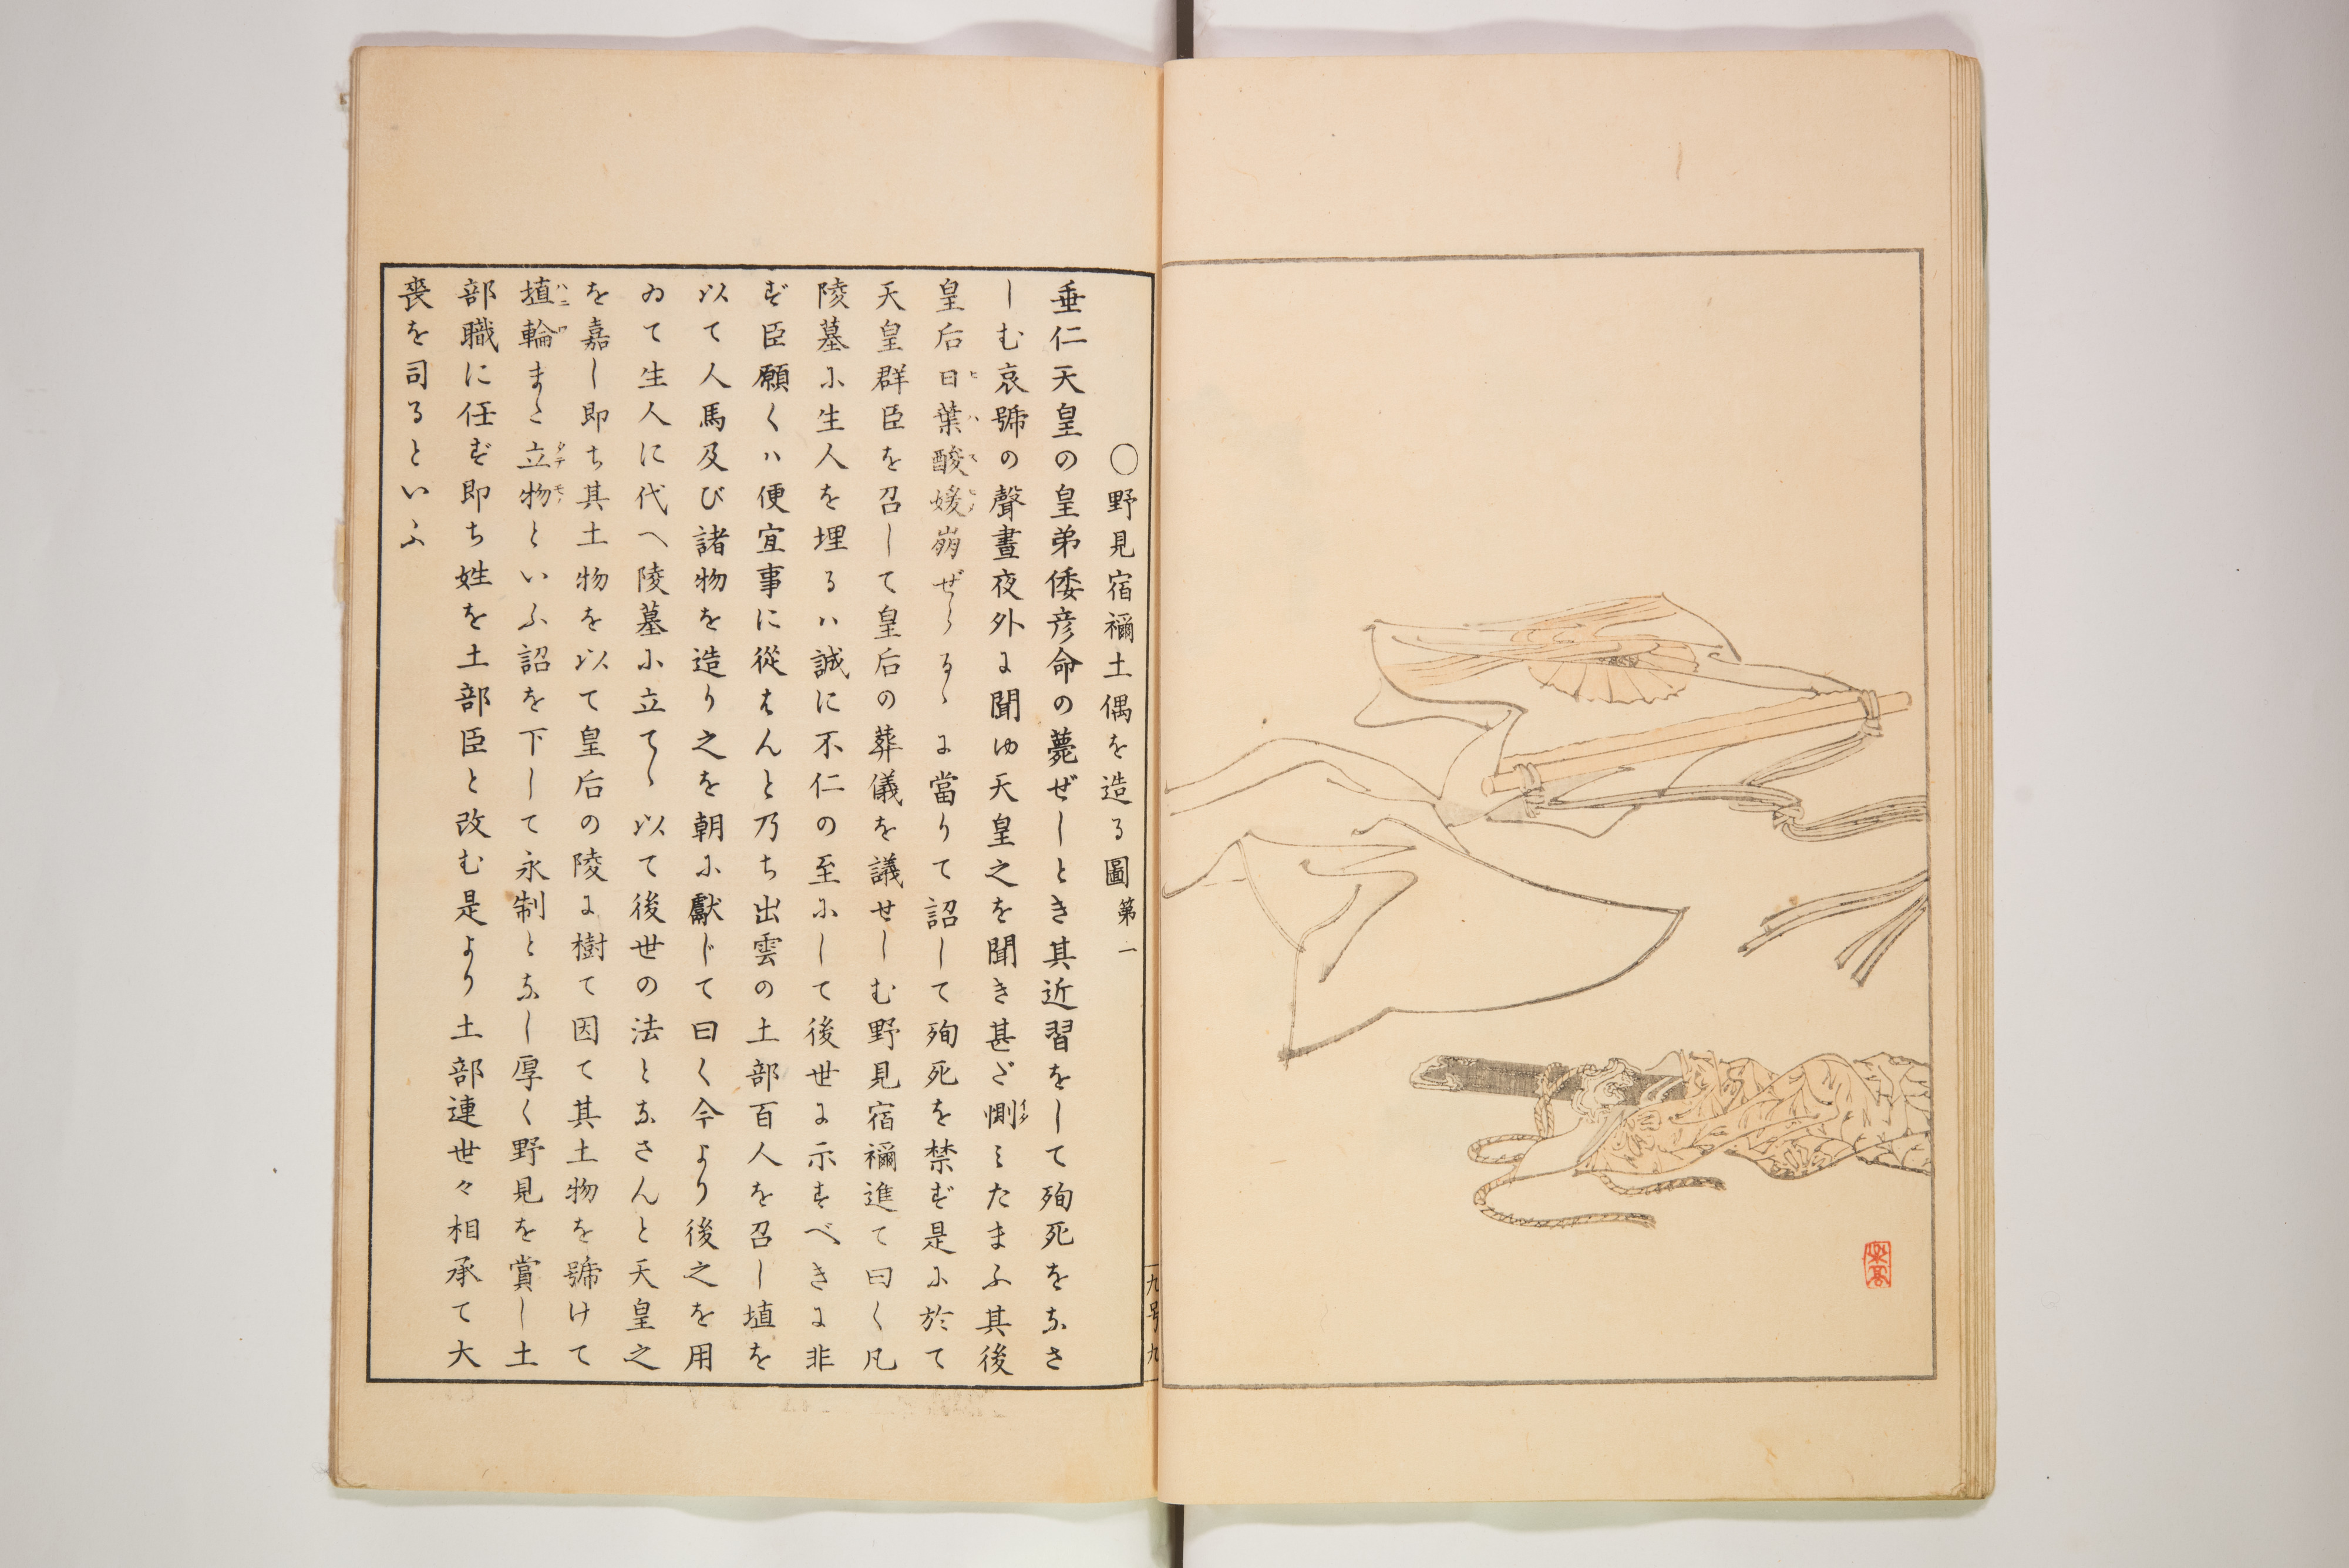 ○野見宿禰土偶を造る圖第一
垂仁天皇の皇弟倭彦命の薨ぜしとき其近習をして殉死をなさ
しむ哀號の聲晝夜外に聞ゆ天皇之を聞き甚ざ惻みたまふ其後
皇后日葉酸媛崩ぜらるゝに當りて詔して殉死を禁ず是に於て
天皇群臣を召して皇后の葬儀を議せしむ野見宿禰進て曰く凡
陵墓に生人を埋るハ誠に不仁の至にして後世に示すべきに非
ず臣願くハ便宜事に從はんと乃ち出雲の土部百人を召し埴を
以て人馬及び諸物を造り之を朝に獻じて曰く今より後之を用
ゐて生人に代へ陵墓に立てゝ以て後世の法となさんと天皇之
を嘉し即ち其土物を以て皇后の陵に樹て因て其土物を號けて
埴輪また立物といふ詔を下して永制となし厚く野見を賞し土
部職に任ず即ち姓を土部臣と改む是より土部連世々相承て大
喪を司るといふ
九号九